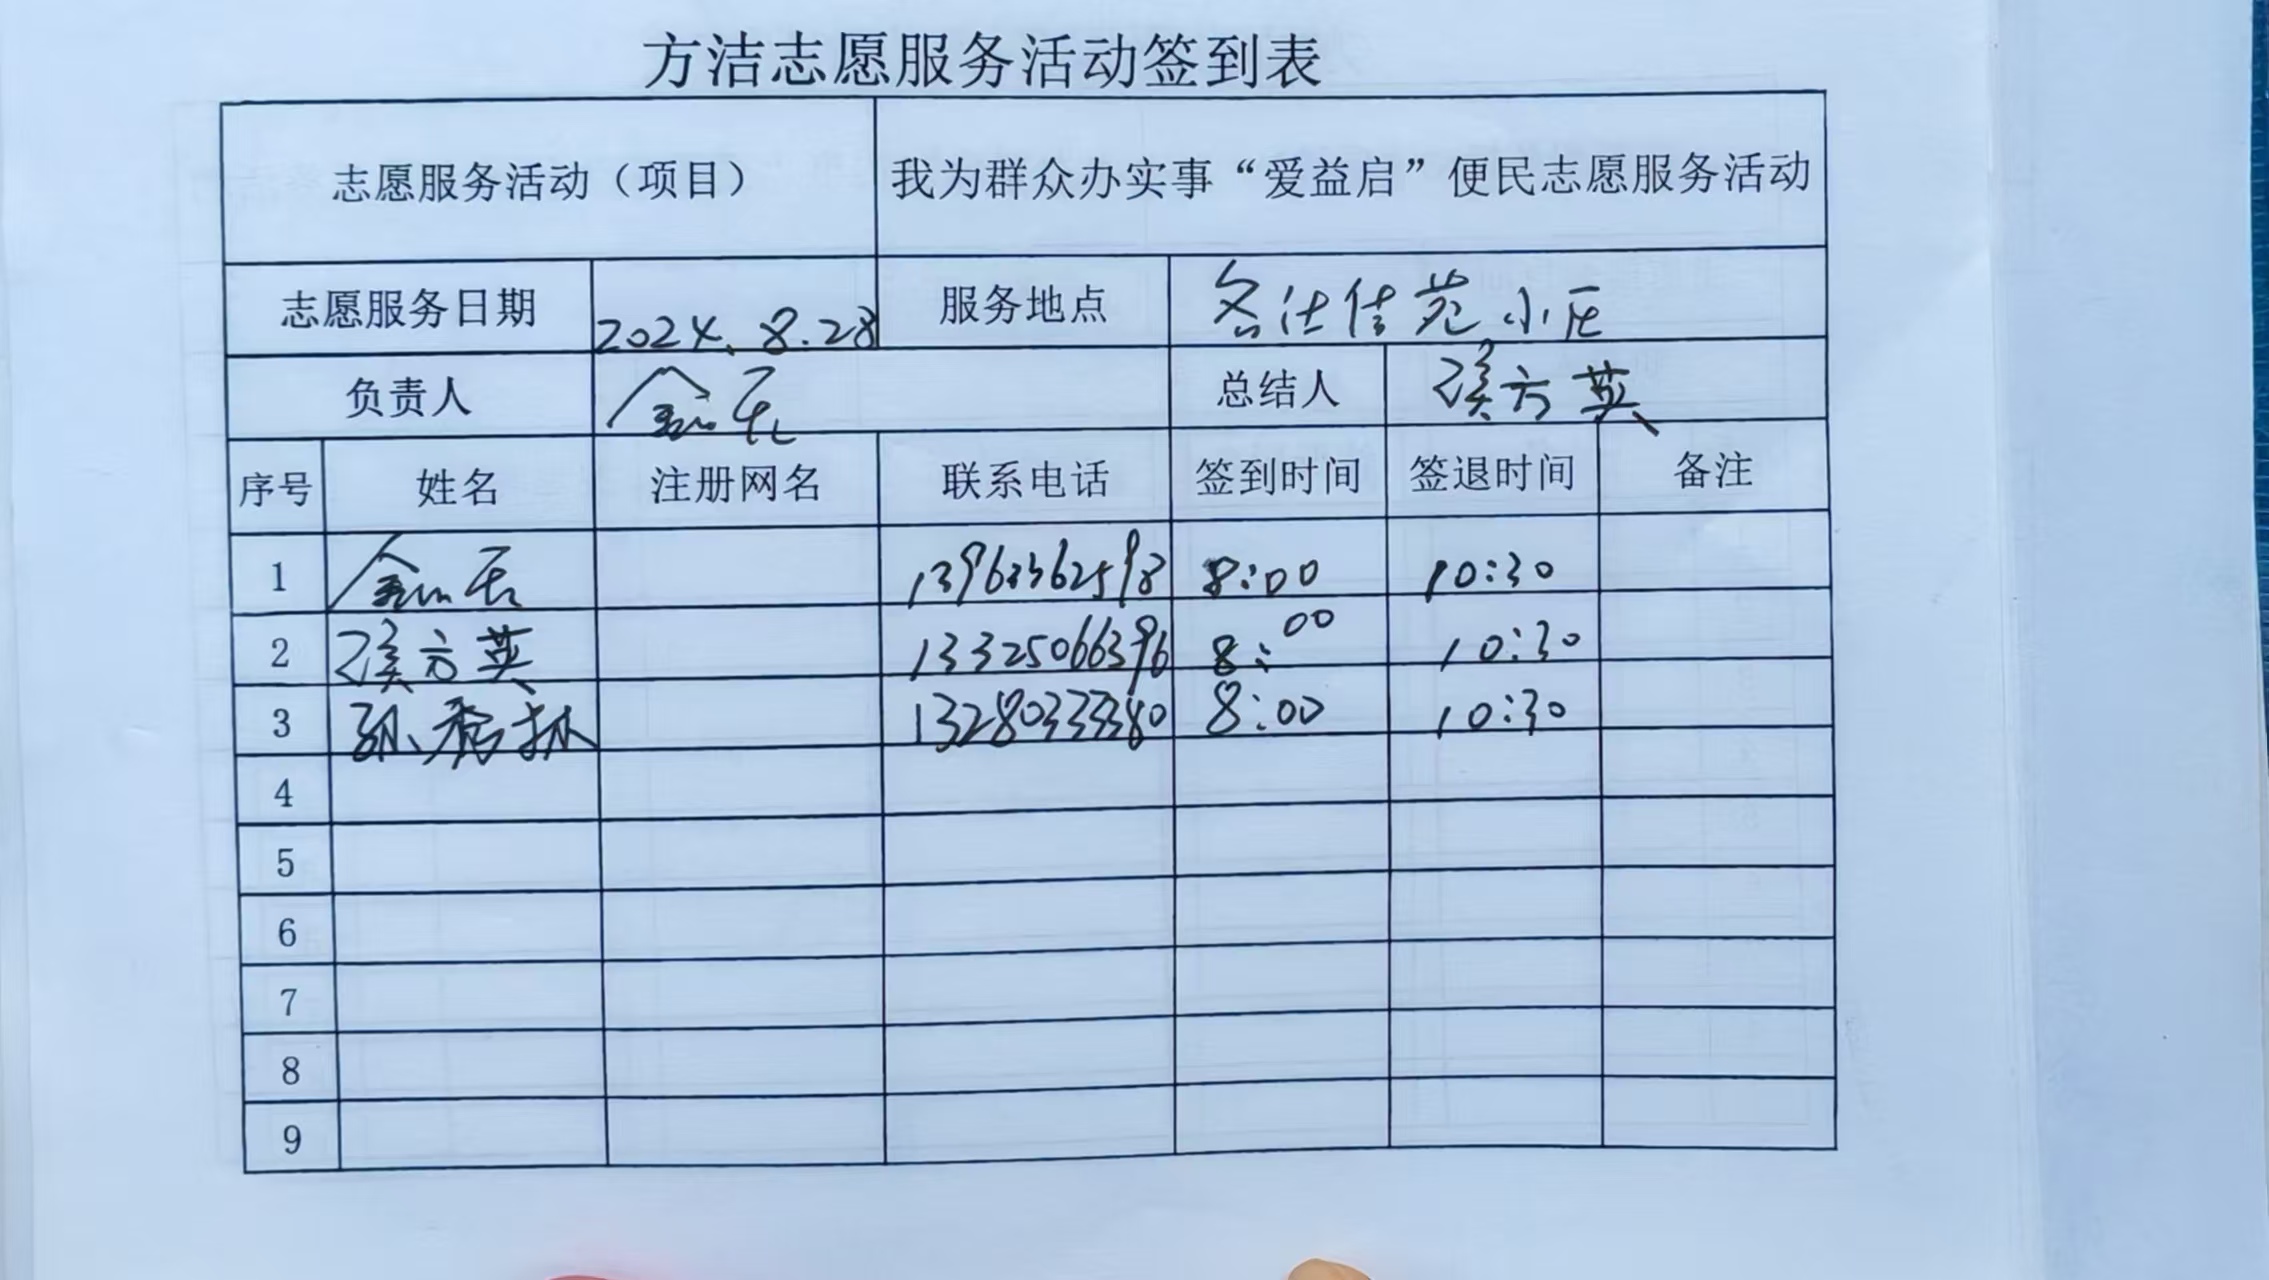 方洁志愿服务活动签到表
志愿服务活动（项目） 我为群众办实事“爱益启”便民志愿服务活动
志愿服务日期 2024.8.28 服务地点 名仕佳苑小区
负责人 总结人 方英
序号 姓名 注册网名 联系电话 签到时间 签退时间 备注
1 13963362598 8:00 10:30
2 方英 13325066396 8:00 10:30
3 孙秀林 13280333380 8:00 10:30
4
5
6
7
8
9